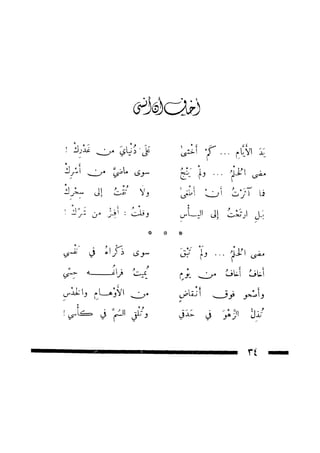 أخاف أن أنسى
يَدَ الأيَّامِ ... كَمْ أَخْشَى على دُنْيَايَ من غَدْرِكْ !
مضى الحُلْمُ ... ولَمْ يَنْجُ سوى ماضيَّ من أَسْرِكْ
فما آثَرْتُ أنْ أَلْقَى ولا تُقْتُ إلى سِحْرِكْ
بَلِ ارْتَحْتُ إلى اليأسِ وقلتُ : أفِرُّ من شَرِّكْ !
* * *
مضى الحُلْمُ ... ولَمْ تَبْقَ سوى ذكراهُ في نَفْسي
أخافُ أخافُ من يومٍ يُميتُ فراغُه حِسّي
وأَصْحو فوقَ أنْقاضٍ من الأوْهامِ والحَدْسِ
تُذِلُّ الزَّهْوَ في حَدَقي وتُلْقي السُّمَّ في كأسي !
٣٤